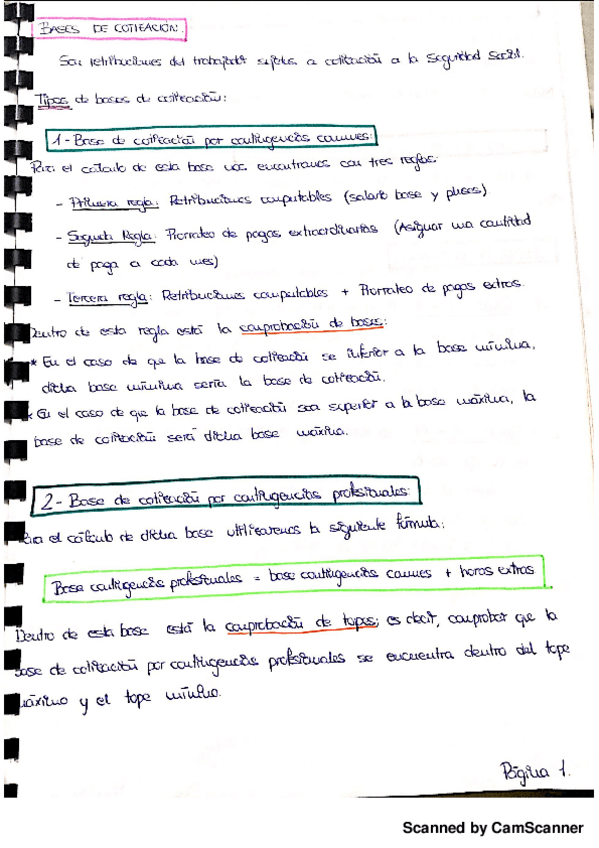 BASES DE COTIZACIÓN:
Son retribuciones del trabajador sujetas a cotización a la Seguridad Social.
Tipos de bases de cotización:
1- Base de cotización por contingencias comunes:
Para el cálculo de esta base nos encontramos con tres reglas:
- Primera regla: Retribuciones computables (salario base y pluses)
- Segunda Regla: Prorrateo de pagas extraordinarias (Asignar una cantidad
de paga a cada mes)
- Tercera regla: Retribuciones computables + Prorrateo de pagas extras.
Dentro de esta regla está la comprobación de bases:
* En el caso de que la base de cotización se inferior a la base mínima,
dicha base mínima sería la base de cotización.
* En el caso de que la base de cotización sea superior a la base máxima, la
base de cotización será dicha base máxima.
2- Base de cotización por contingencias profesionales:
Para el cálculo de dicha base utilizaremos la siguiente fórmula:
Base contingencias profesionales = base contingencias comunes + horas extras
Dentro de esta base está la comprobación de topes; es decir, comprobar que la
base de cotización por contingencias profesionales se encuentra dentro del tope
máximo y el tope mínimo.
Página 1.
Scanned by CamScanner